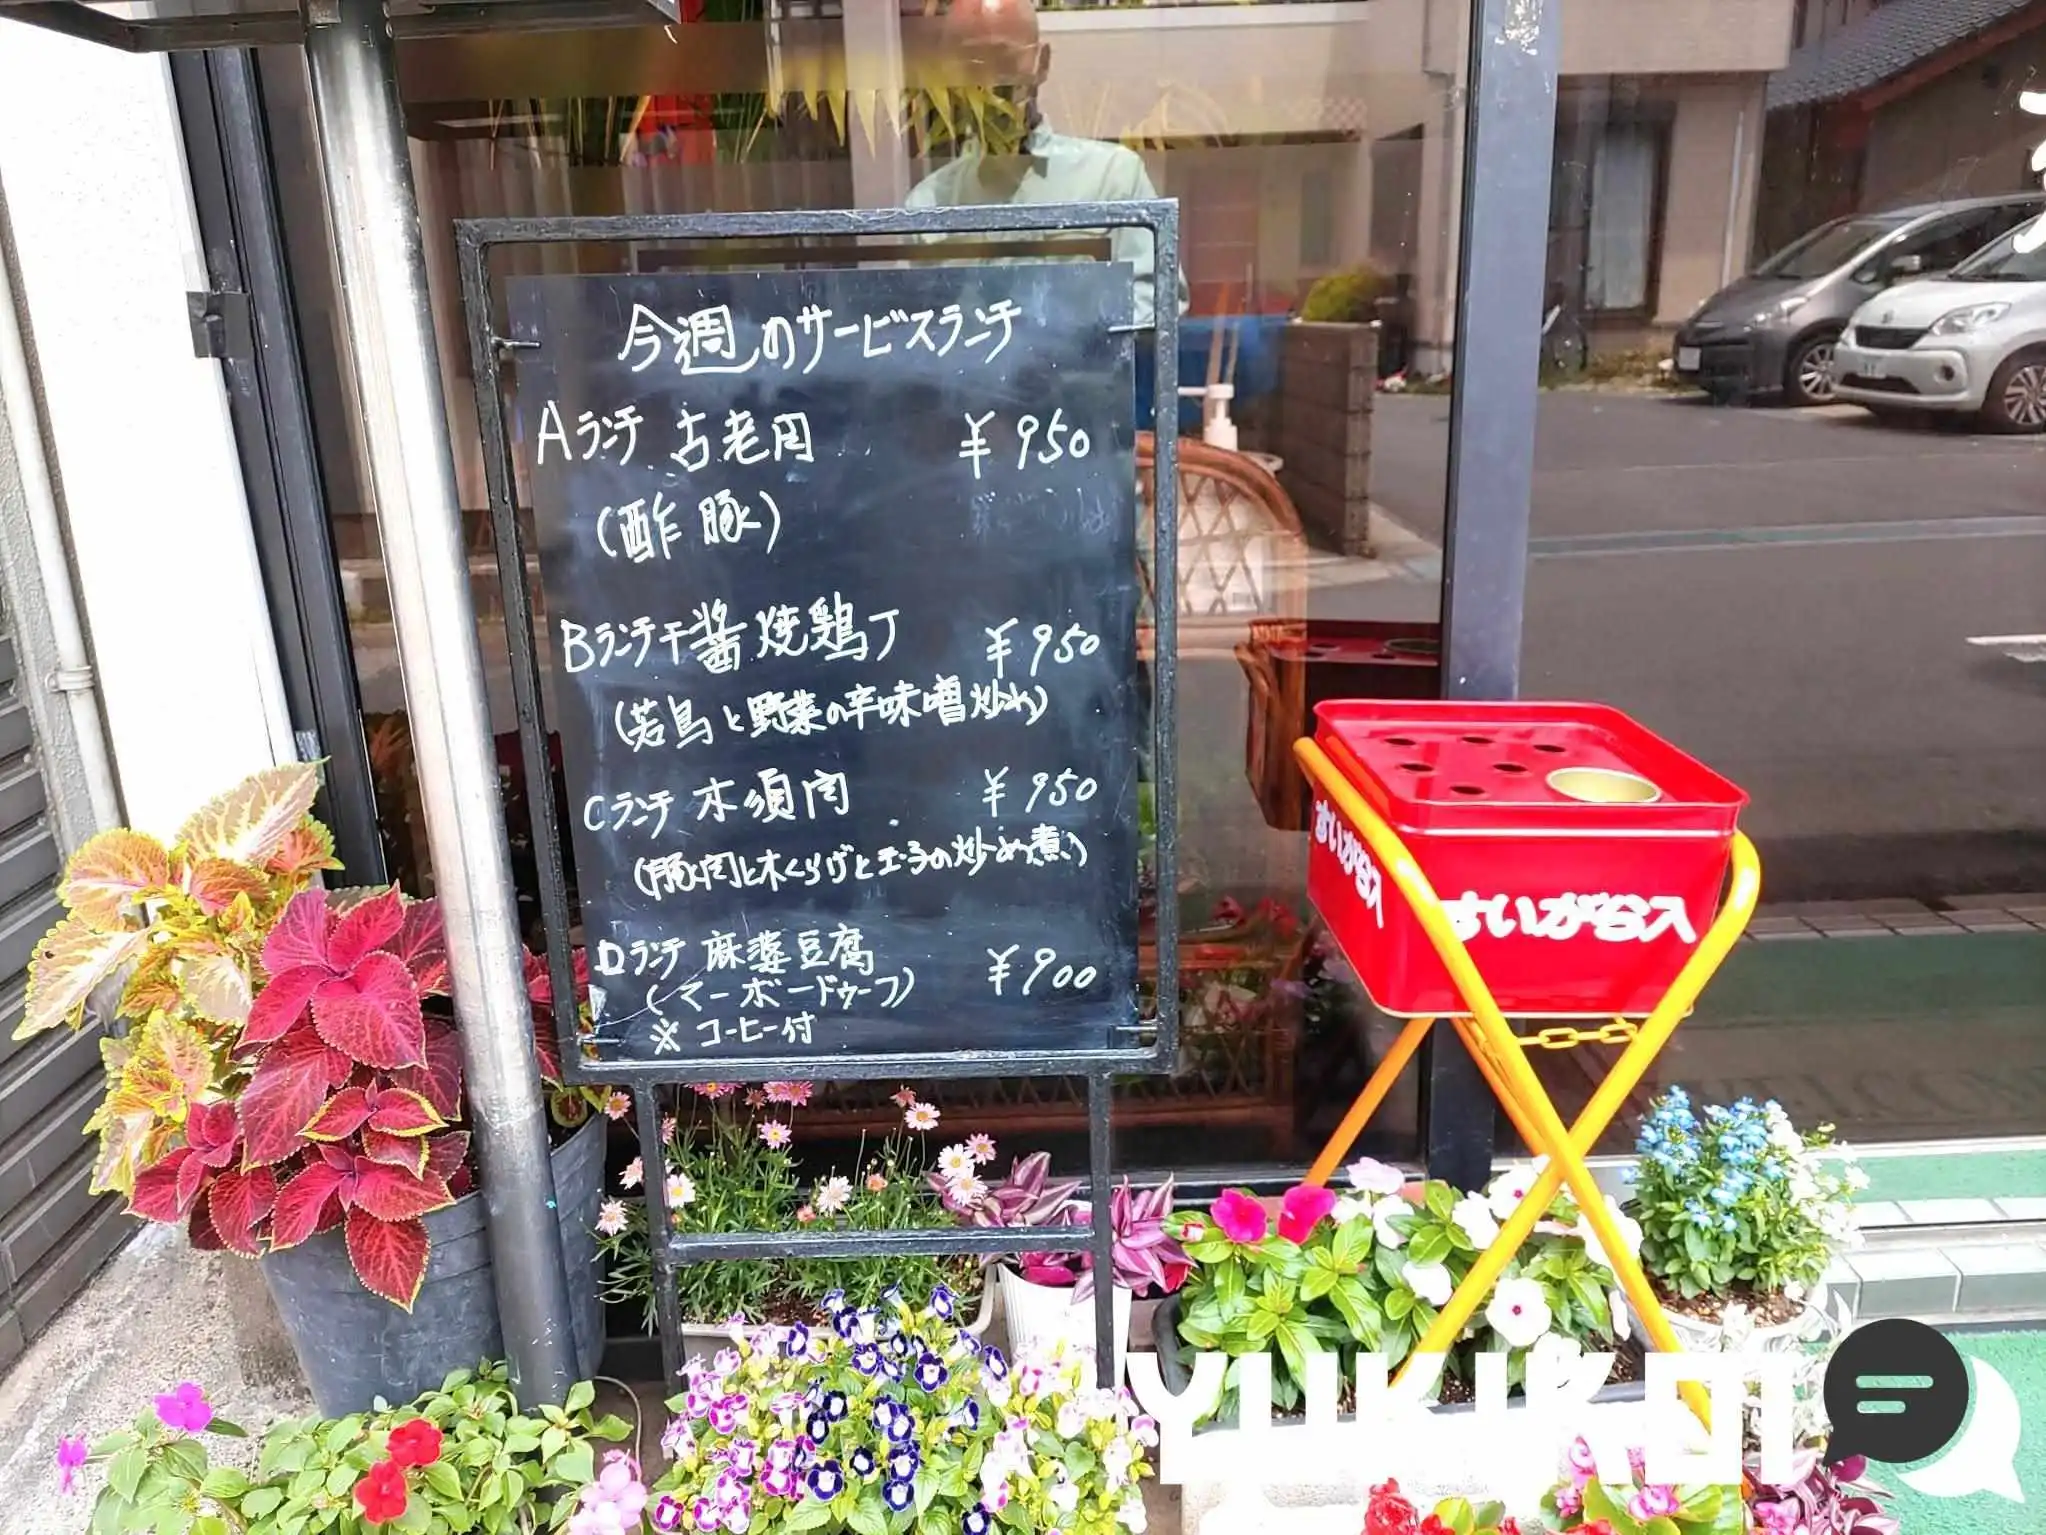 今週のサービスランチ
Aランチ 古老肉 ¥950
(酢豚)
Bランチ 干醤焼鶏丁 ¥950
(若鳥と野菜の辛味噌炒め)
Cランチ 木須肉 ¥950
(豚肉と木くらげと玉子の炒め煮)
Dランチ 麻婆豆腐 ¥900
(マーボードゥーフ)
※ コーヒー付
すいがら入
すいがら入
WELCOME
YUKIKOI